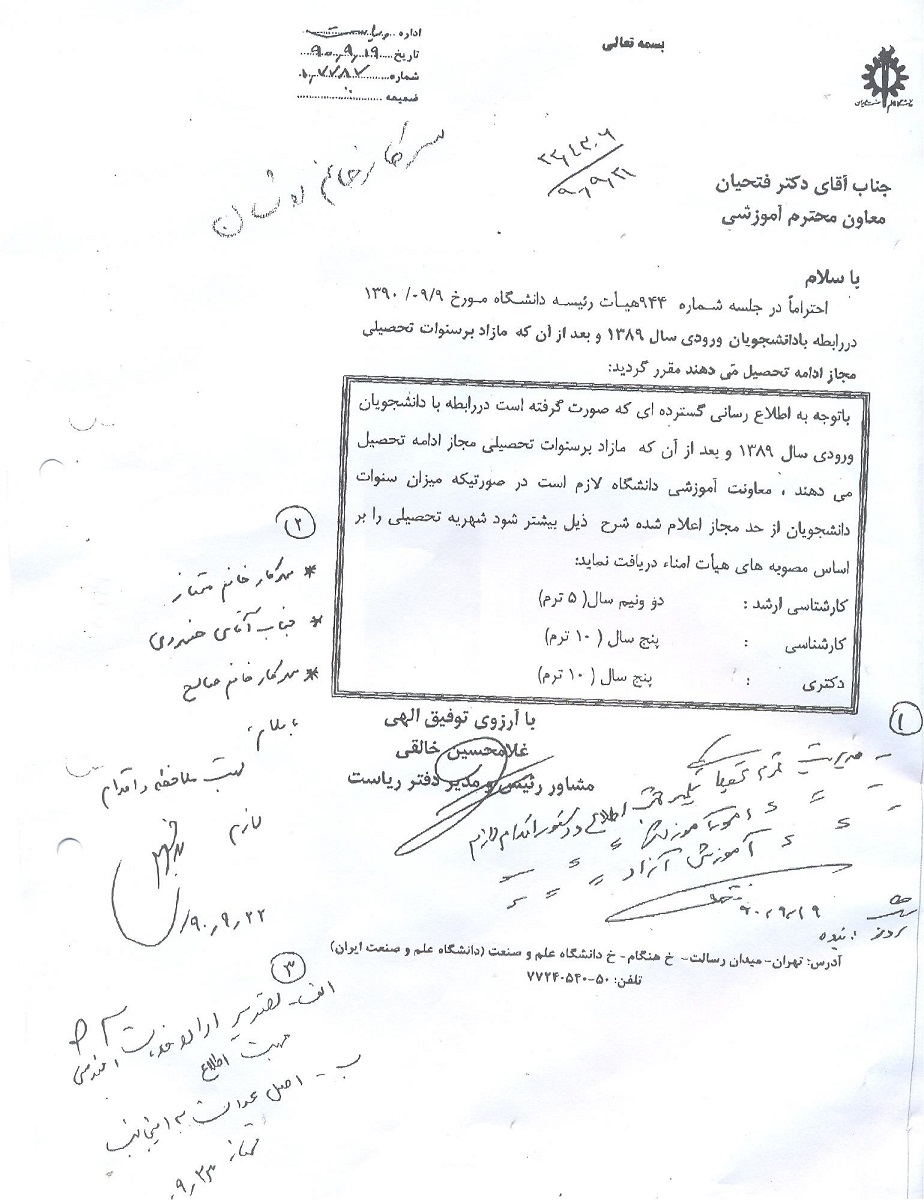 بسمه تعالی
اداره ریاست
تاریخ ۹۰,۹,۱۹
شماره
ضمیمه
جناب آقای دکتر فتحیان
معاون محترم آموزشی
سرکار خانم
۹۰,۹,۲۱
با سلام
احتراماً در جلسه شماره ۹۴۴هیأت رئیسه دانشگاه مورخ ۰۹/۹/ ۱۳۹۰
دررابطه بادانشجویان ورودی سال ۱۳۸۹ و بعد از آن که مازاد برسنوات تحصیلی
مجاز ادامه تحصیل می دهند مقرر گردید:
باتوجه به اطلاع رسانی گسترده ای که صورت گرفته است دررابطه با دانشجویان
ورودی سال ۱۳۸۹ و بعد از آن که مازاد برسنوات تحصیلی مجاز ادامه تحصیل
می دهند ، معاونت آموزشی دانشگاه لازم است در صورتیکه میزان سنوات
دانشجویان از حد مجاز اعلام شده شرح ذیل بیشتر شود شهریه تحصیلی را بر
اساس مصوبه های هیأت امناء دریافت نماید:
کارشناسی ارشد : دو ونیم سال( ۵ ترم)
کارشناسی : پنج سال ( ۱۰ ترم)
دکتری : پنج سال ( ۱۰ ترم)
با آرزوی توفیق الهی
غلامحسین خالقی
مشاور رئیس و مدیر دفتر ریاست
۱
- مدیریت محترم تحصیلات تکمیلی جهت اطلاع و دستور اقدام لازم
امور آموزشی
آموزش آزاد
۹۰,۹,۱۹
۲
* سرکار خانم ممتاز
* جناب آقای
* سرکار خانم صالح
با سلام،
جهت ملاحظه و اقدام
لازم
۹۰,۹,۲۲
آدرس: تهران- میدان رسالت- خ هنگام- خ دانشگاه علم و صنعت (دانشگاه علم و صنعت ایران)
تلفن: ۵۰-۷۷۲۴۰۵۴۰
۳
الف-
جهت اطلاع
ب -
ممتاز ۹,۲۳